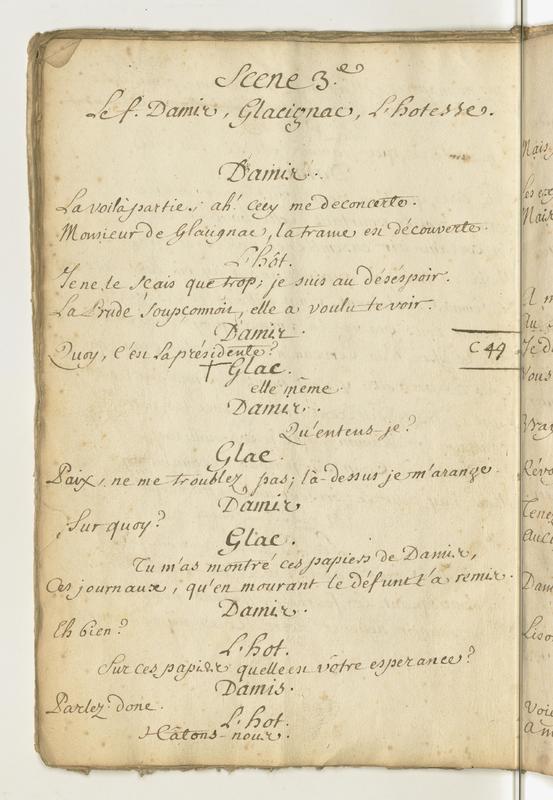 Scene 3.e
Le f. Damis, Glacignac, L'hotesse.
Damis.
La voilà partie; ah! cecy me deconcerte.
Monsieur de Glacignac, la trame est découverte.
L'hôt.
Je ne le sçais que trop; je suis au désespoir.
La Prude soupçonnoit, elle a voulu te voir.
Damis.
Quoy, c'est la présidente?
C 44
+ Glac.
elle même.
Damis.
Qu'entens-je?
Glac.
Paix, ne me troublez pas; là-dessus je m'arange.
Damis
Sur quoy?
Glac.
Tu m'as montré ces papiers de Damis,
Ces journaux, qu'en mourant le défunt t'a remis.
Damis.
Eh bien?
L'hot.
Sur ces papiers quelle est votre esperance?
Damis.
Parlez donc.
L'hot.
Hâtons-nous.